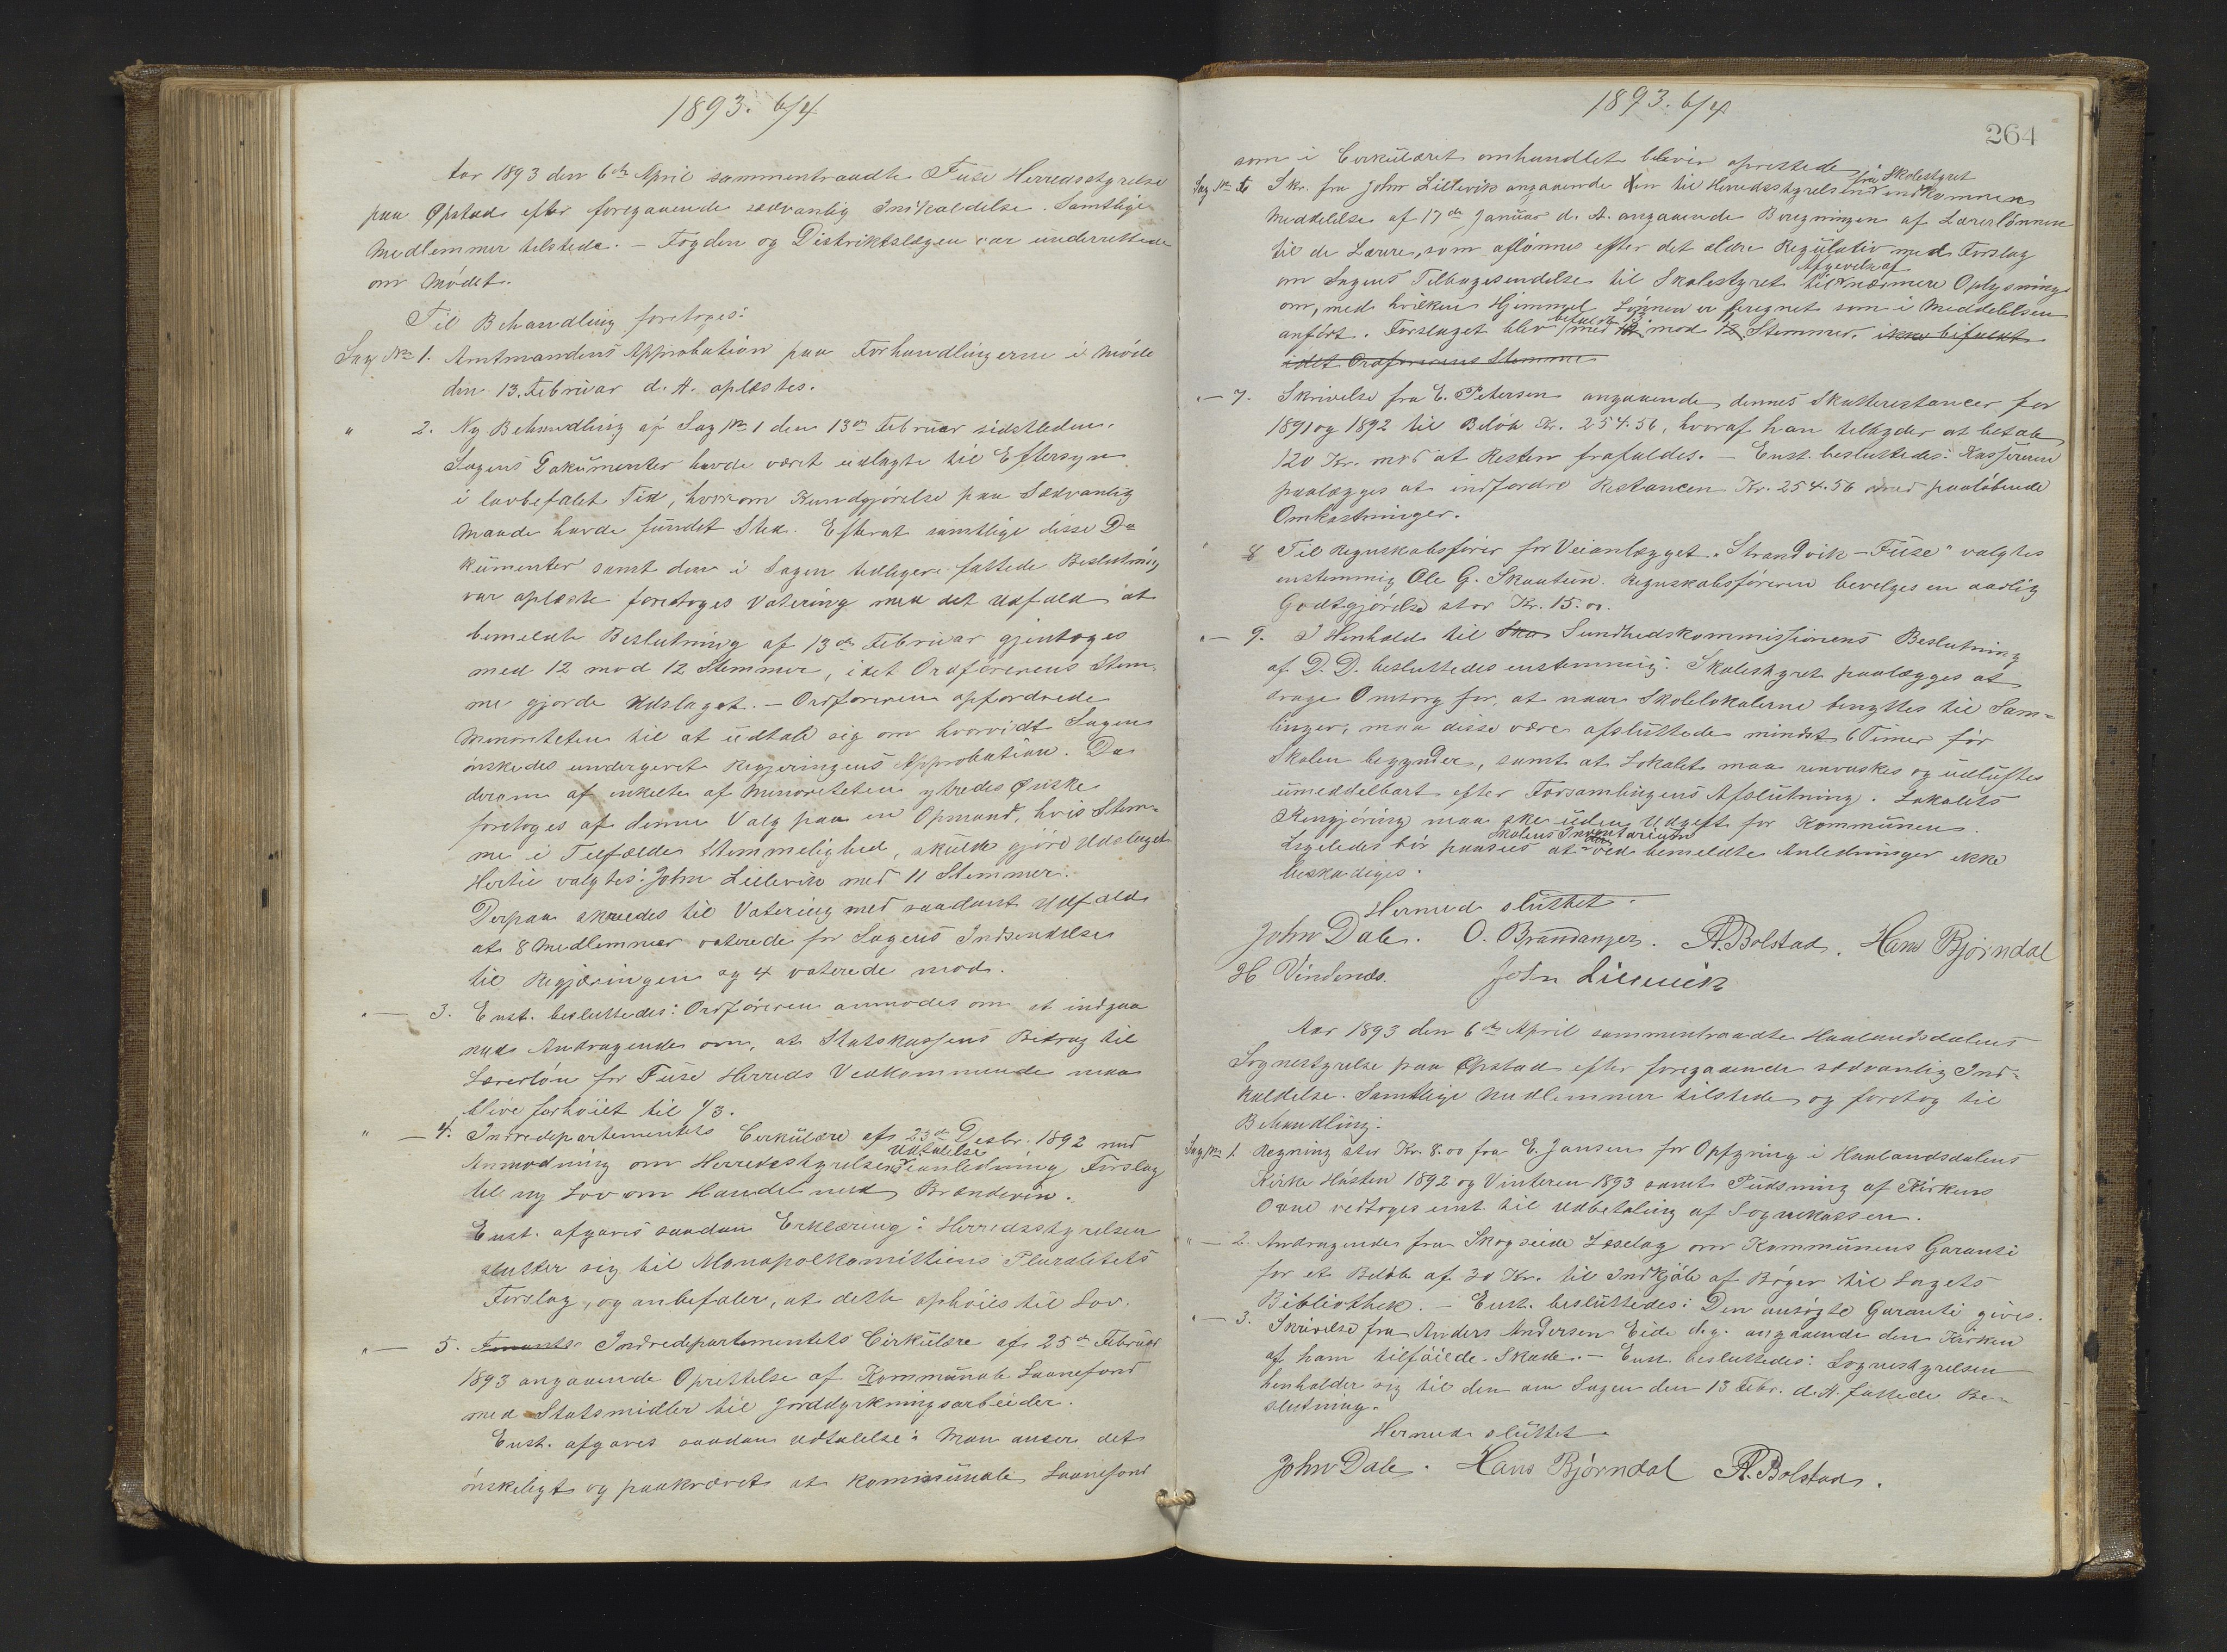 1893. 6/4
Aar 1893 den 6te April sammentraadte Fuse Herredsstyrelse
paa Opstad efter foregaaende sædvanlig Indkaldelse. Samtlige
Medlemmer tilstede. – Fogden og Distriktslægen var underrettede
om Mødet.
Til Behandling foretoges:
Sag No 1. Amtmandens Approbation paa Forhandlingerne i Møde
den 13. Februar d. A. oplæstes.
" 2. Ny Behandling af Sag No 1 den 13de Februar sidstleden.
Sagens Dokumenter havde været udlagte til Eftersyn
i lovbefalet Tid, hvorom Kundgjørelse paa Sædvanlig
Maade havde fundet Sted. Efterat samtlige disse Do-
kumenter samt den i Sagen tidligere fattede Beslutning
var oplæste foretoges Votering med det Udfald at
bemeldte Beslutning af 13de Februar gjentoges
med 12 mod 12 Stemmer, idet Ordførerens Stem-
me gjorde Udslaget. – Ordføreren opfordrede
Minoriteten til at udtale sig om hvorvidt Sagen
ønskedes undergivet Regjeringens Approbation. Da
derom af enkelte af Minoriteten ytredes Ønske
foretoges af denne Valg paa en Opmand, hvis Stem-
me i Tilfælde Stemmelighed, skulde gjøre Udslaget
Hertil valgtes: John Lillevik med 11 Stemmer.
Derpaa skredes til Votering med saadant Udfald
at 8 Medlemmer voterede for Sagens Indsendelse
til Regjeringen og 4 voterede mod.
" — 3. Enst. besluttedes: Ordføreren anmodes om at indgaa
med Andragende om, at Statskassens Bidrag til
Lærerløn for Fuse Herreds Vedkommende maa
blive forhøiet til 1/3.
" — 4. Indredepartementets Cirkulære af 23de Desbr. 1892 med
Udtalelse
Anmodning om Herredsstyrelsens i anledning Forslag
til ny Lov om Handel med Brændevin.
Enst. afgaves saadan Erklæring: Herredsstyrelsen
slutter sig til Monopolkomitteens Pluralitets
Forslag, og anbefaler, at dette ophøies til Lov.
" — 5. Indredepartementets Cirkulære af 25de Februar
1893 angaaende Oprettelse af Kommunale Laanefond
med Statsmidler til Jorddyrkningsarbeider.
Enst. afgaves saadan Udtalelse: Man anser det
ønskeligt og paakrævet at kommunale Laanefond
1893. 6/4
264
som i Cirkulæret omhandlet bliver oprettede
fra Skolestyret
Sag No 6 Skr. fra John Lillevik angaaende den til Herredsstyrelsen indkomne
Meddelelse af 17de Januar d. A. angaaende Beregningen af Lærerlønnen
til de Lærere, som aflønnes efter det ældre Regulativ med Forslag
Afgivelse af
om Sagens Tilbagesendelse til Skolestyret til nærmere Oplysning
om, med hvilken Hjemmel Lønnen er beregnet som i Meddelelsen
bifaldt 13
anført. Forslaget blev med mod Stemmer. ikke bifaldt
idet Ordførerens Stemme
" — 7. Skrivelse fra E. Petersen angaaende dennes Skatterestancer for
1891 og 1892 til Beløb Kr. 254.56, hvoraf han tilbyder at betale
120 Kr. mod at Resten frafaldes. – Enst. besluttedes: Kassereren
paalægges at indfordre Restancen Kr. 254.56 med paaløbende
Omkostninger.
" 8 Til Regnskabsfører for Veianlægget "Strandvik – Fuse" valgtes
enstemmig Ole G. Skaatun. Regnskabsføreren bevilges en aarlig
Godtgjørelse stor Kr. 15.00.
" — 9. I Henhold til Sko Sundhedskommissionens Beslutning
af D. D. besluttedes enstemmig: Skolestyret paalægges at
drage Omsorg for, at naar Skolelokalerne benyttes til Sam-
linger, maa disse være afsluttede mindst 6 Timer før
Skolen begynder, samt at Lokalet maa renvaskes og udluftes
umeddelbart efter Forsamlingens Afslutning. Lokalets
Rengjøring maa ske uden Udgift for Kommunen.
Skolens Inventarium
Ligeledes bør paasees at ved bemeldte Anledninger ikke
beskadiges.
Hermed sluttet.
John Dale. O. Brandanger. A. Bolstad. Hans Bjørndal
H Vindenes. John Lillevick
Aar 1893 den 6te April sammentraadte Haalandsdalens
Sognestyrelse paa Opstad efter foregaaende sædvanlig Ind-
kaldelse. Samtlige Medlemmer tilstede, og foretog til
Behandling:
Sag No 1. Regning stor Kr. 8.00 fra E. Jansen for Opfyring i Haalandsdalens
Kirke Høsten 1892 og Vinteren 1893 samt Pudsning af Kirkens
Ovne vedtoges enst. til Udbetaling af Sognekassen.
" — 2. Andragende fra Skogseide Læselag om Kommunens Garanti
for et Beløb af 30 Kr. til Indkjøb af Bøger til Lagets
Bibliothek. – Enst. besluttedes: Den ansøgte Garanti gives.
" — 3. Skrivelse fra Anders Andersen Eide d.y. angaaende den Kirken
af ham tilføiede Skade. – Enst. besluttedes: Sognestyrelsen
henholder sig til den om Sagen den 13 Febr. d. A. fattede Be-
slutning.
Hermed sluttet.
John Dale. Hans Bjørndal A. Bolstad.